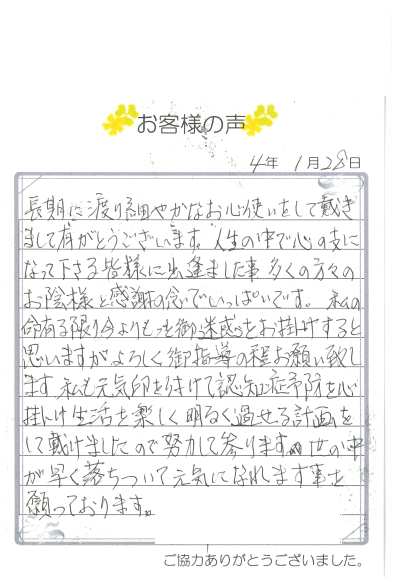 お客様の声
4年 1月28日
長期に渡り細やかなお心使いをして戴き
まして有がとうございます。人生の中で心の支に
なって下さる皆様に出逢ました事多くの方々の
お陰様と感謝の念でいっぱいです。私の
命有る限り今よりもっと御迷惑をお掛けすると
思いますがよろしく御指導の程お願い致し
ます 私も元気印を付けて認知症予防を心
掛け生活を楽しく明るく過せる計画を
して戴けましたので努力して参ります。世の中
が早く落ちついて元気になれます事を
願っております。
ご協力ありがとうございました。